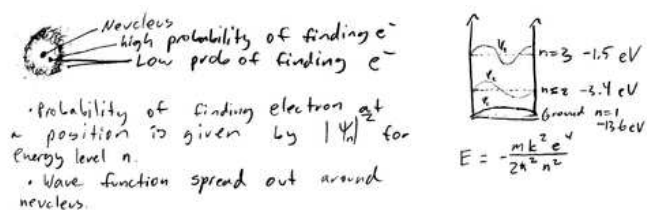 Neucleus
high probability of finding e⁻
Low prob of finding e⁻
• Probability of finding electron at
a position is given by |Ψn|² for
energy level n.
• Wave function spread out around
neucleus.
Ψ3 n=3 -1.5 eV
Ψ2 n=2 -3.4 eV
Ψ1 Ground n=1
-13.6 eV
E = -mk²e⁴/2ħ²n²